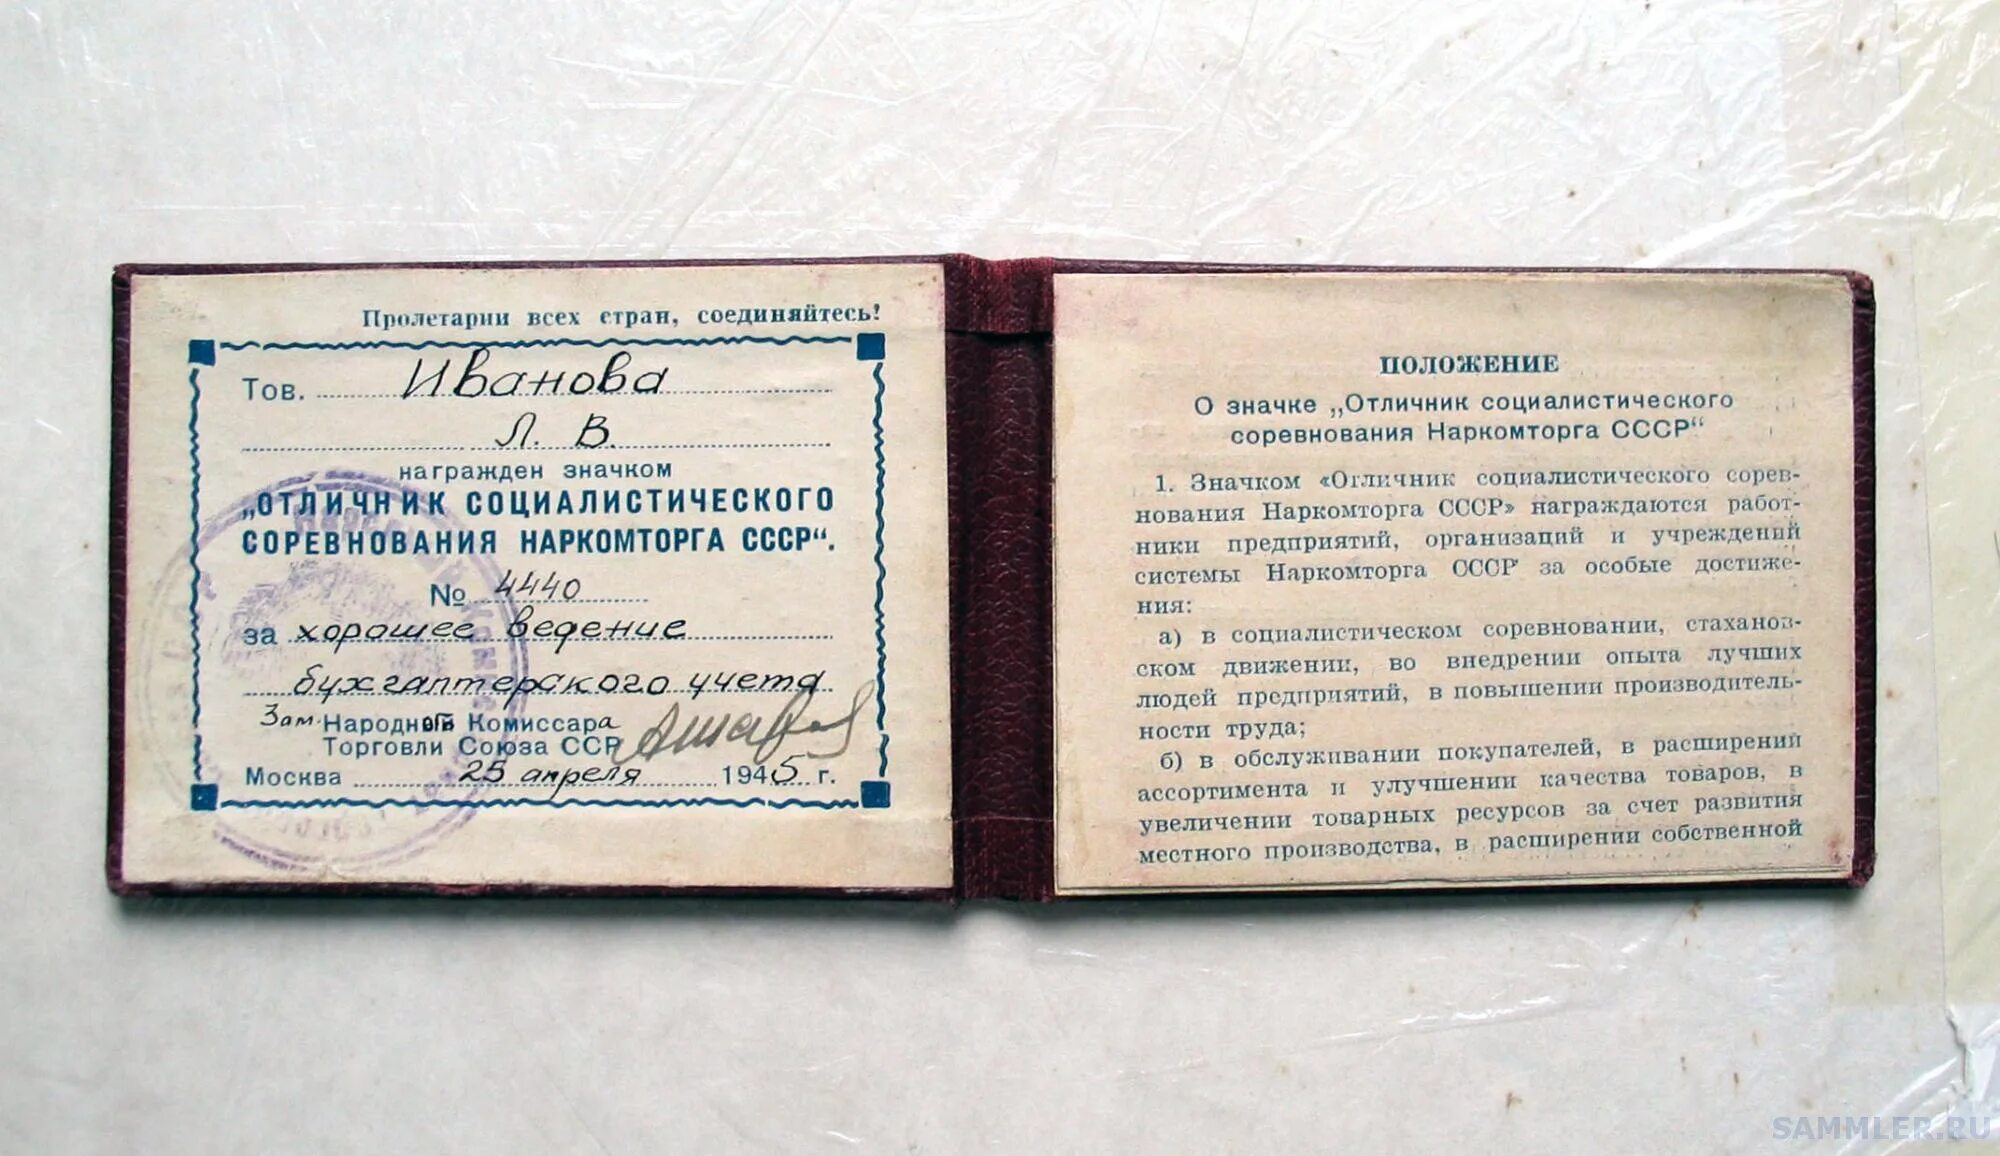 Пролетарии всех стран, соединяйтесь!
Тов. Иванова
Л. В.
награжден значком
„ОТЛИЧНИК СОЦИАЛИСТИЧЕСКОГО
СОРЕВНОВАНИЯ НАРКОМТОРГА СССР“.
№ 4440
за хорошее ведение
бухгалтерского учета
Зам. Народного Комиссара
Торговли Союза ССР
Москва 25 апреля 1945 г.
ПОЛОЖЕНИЕ
О значке „Отличник социалистического
соревнования Наркомторга СССР“
1. Значком «Отличник социалистического сорев-
нования Наркомторга СССР» награждаются работ-
ники предприятий, организаций и учреждений
системы Наркомторга СССР за особые достиже-
ния:
а) в социалистическом соревновании, стаханов-
ском движении, во внедрении опыта лучших
людей предприятий, в повышении производитель-
ности труда;
б) в обслуживании покупателей, в расширении
ассортимента и улучшении качества товаров, в
увеличении товарных ресурсов за счет развития
местного производства, в расширении собственной
SAMMLER.RU